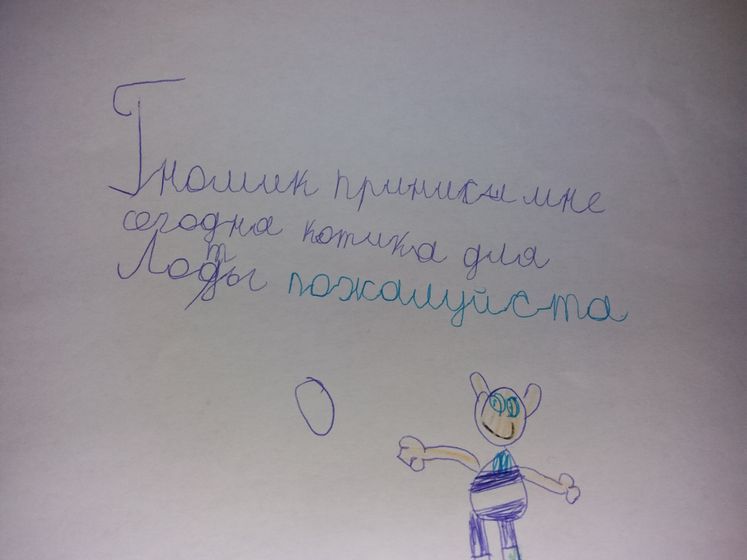 Гномик приниси мне
сегодна котика для
пожалуйста